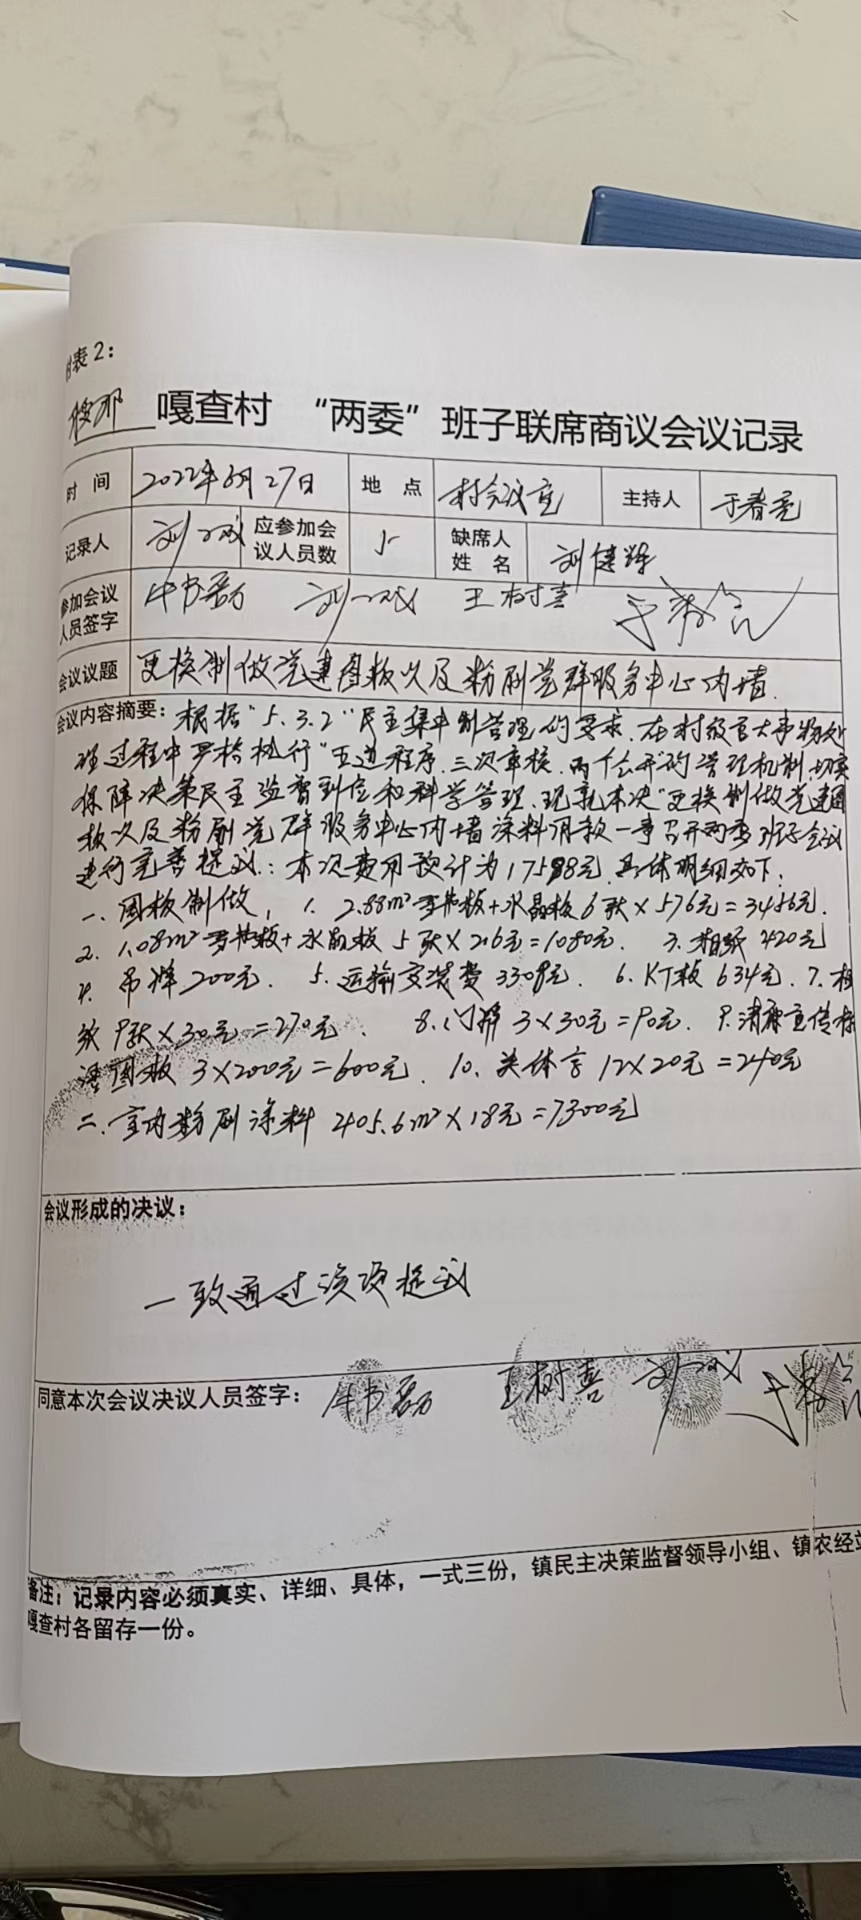 附表2：
嘎查村 “两委”班子联席商议会议记录
时 间 2022年6月27日 地 点 村会议室 主持人 于春亮
记录人 刘 应参加会议人员数 5 缺席人姓名 刘健辉
参加会议人员签字 牛书磊 刘 王树喜 于春亮
会议议题 更换制做党建图板以及粉刷党群服务中心内墙
会议内容摘要：根据“5.3.2”民主集中制管理的要求，在村级重大事务处
理过程中严格执行“五道程序、三次审核、两个公开”的管理机制，切实
保障决策民主、监督到位和科学管理，现就本次“更换制做党建图
板以及粉刷党群服务中心内墙涂料用款一事召开两委班子会议
进行完善提议：本次费用预计为17598元，具体明细如下：
一、图板制做， 1. 2.88m²雪弗板+水晶板6张×576元=3456元.
2. 1.08m²雪弗板+水晶板 5张×216元=1080元. 3. 相纸420元
4. 吊牌200元. 5. 运输安装费3308元. 6. KT板634元. 7.
9张×30元=270元. 8. 门牌3×30元=90元. 9. 清廉宣传标
语图板 3×200元=600元. 10. 类体字12×20元=240元
二. 室内粉刷涂料 405.6m²×18元=7300元
会议形成的决议：
一致通过该项提议
同意本次会议决议人员签字： 牛书磊 王树喜 刘 于春亮
备注：记录内容必须真实、详细、具体，一式三份，镇民主决策监督领导小组、镇农经站
嘎查村各留存一份。